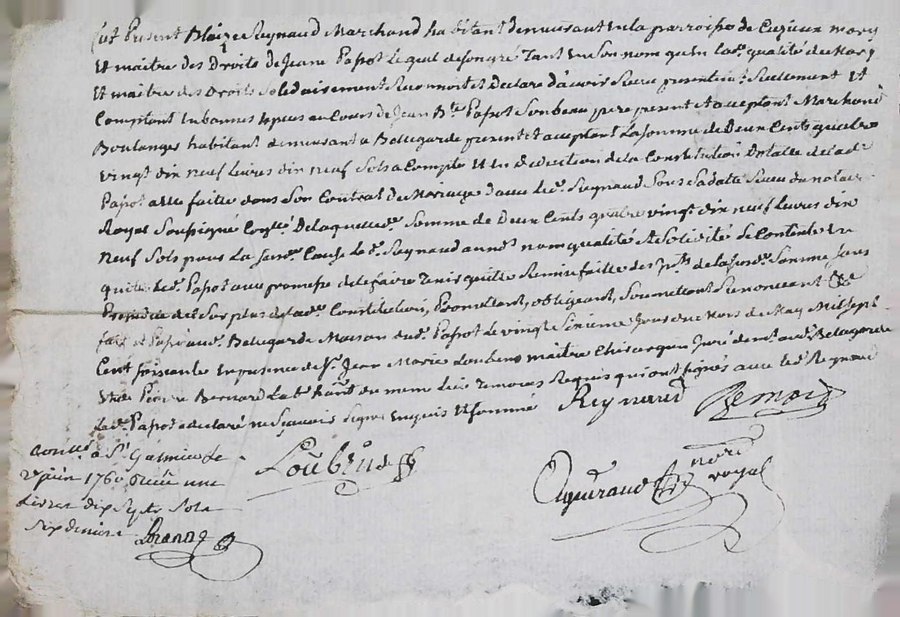 fut Present Blaize Reynaud Marchand habitant demeurant en la parroisse de Cuzieux mary
Et maitre des Droits de Jeanne Papot Lequel de son gré Tant en Son nom qu'en lad. qualité de Mary
Et maitre des Droits Solidairement Reconnoit et Declare d'avoir Reçu presentement Reellement Et
Comptant En bonnes Especes au Cours de Jean Bte. Papot Son beau pere present et acceptant Marchand
Boulanger habitant demeurant a Bellegarde present et acceptant La somme de Deux Cents quatre
vingt dix neuf Livres dix neuf Sols a Compte Et En Deduction de la Constitution Dotalle de lad.
Papot a Elle faitte dans Son Contrat de Mariage avec led. Reynaud Sous Sa datte Reçu du notaire
Royal Soussigné De laquelle de. Somme de Deux Cents quatre vingt dix neuf Livres dix
neuf Sols pour La Cause Le d. Reynaud nom qualité Et Solidité Se Contente En
quitte led. Papot avec promesse de le faire Tenir quitte de la susd. Somme Sans
Prejudice du Surplus de lad. Constitution, Promettant, obligeant, Soumettant Renonceant &c
fait Et Passé aud. Bellegarde Maison dud. Papot Le vingt Sixieme Jour du Mois de May Mil Sept
Cent soixante En presence de Sr. Jean Marie Loubens maitre Chirurgien Juré demt. aud. Bellegarde
Et de Pierre Bernard hant. du meme Lieu Temoins Requis qui ont signés avec led. Reynaud
Le d. Papot a declaré ne Sçavoir Signer Enquis Et Sommé Reynaud Bernard
a St. Galmier Le Loubens
2e juin 1760 Reçu une nore
Livres dix Sept Sols royal
Six deniers